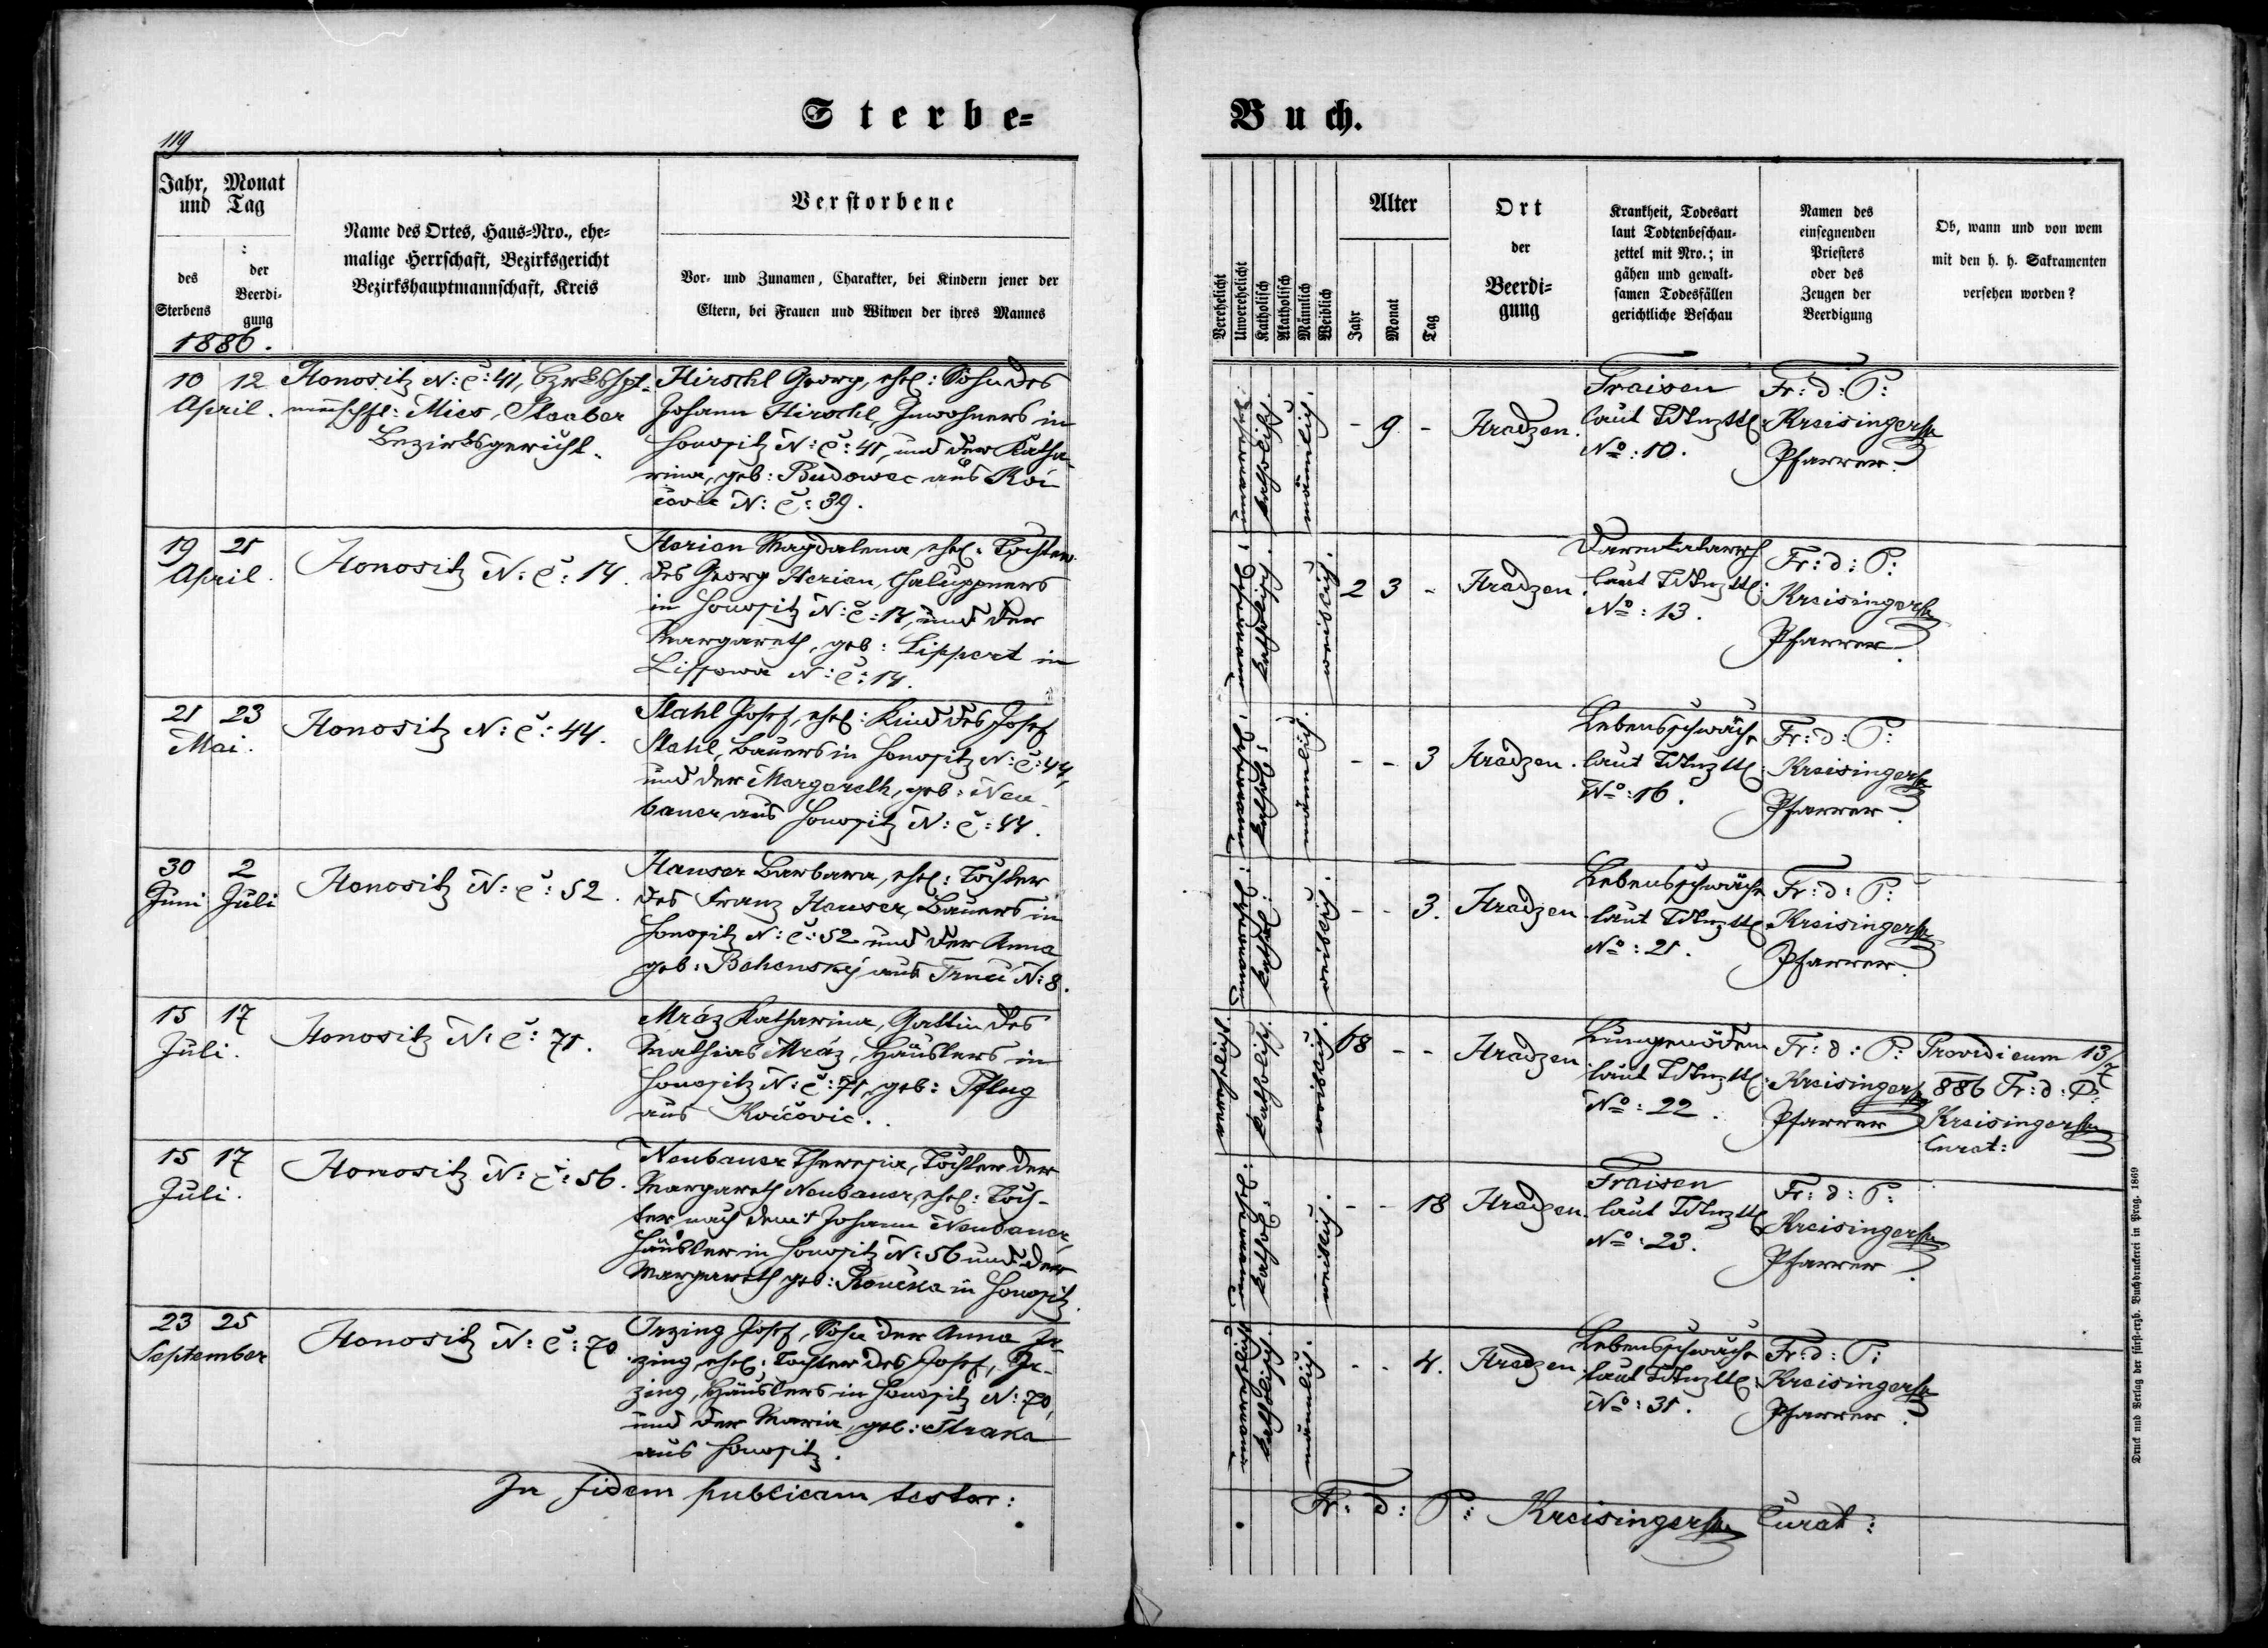 Sterbe-
Buch.
119
Jahr, Monat
und Tag
des
Sterbens
der
Beerdi-
gung
1886.
Name des Ortes, Haus-Nro., ehe-
malige Herrschaft, Bezirksgericht
Bezirkshauptmannschaft, Kreis
Verstorbene
Vor- und Zunamen, Charakter, bei Kindern jener der
Eltern, bei Frauen und Witwen der ihres Mannes
Verehelicht
Unverehelicht
Katholisch
Akatholisch
Männlich
Weiblich
Alter
Jahr
Monat
Tag
Ort
der
Beerdi-
gung
Krankheit, Todesart
laut Todtenbeschau-
zettel mit Nro.; in
gähen und gewalt-
samen Todesfällen
gerichtliche Beschau
Namen des
einsegnenden
Priesters
oder des
Zeugen der
Beerdigung
Ob, wann und von wem
mit den h. h. Sakramenten
versehen worden?
10 12
April.
Honositz N: č: 41,
Mies, Staaber
Bezirksgericht.
Hirschl Georg, ehel: Sohn des
Johann Hirschl, Inwohners in
Honositz N: č: 41, und der Katha-
rina, geb: Budowec aus
N: č: 39.
katholisch.
männlich.
- 9 -
Hradzen.
Fraisen
laut
No: 10.
Fr: d: P:
Kreisinger
Pfarrer.
19 21
April.
Honositz N: č: 14.
Herian Magdalena, ehel: Tochter
des Georg Herian, Chaluppners
in Honositz N: č: 14, und der
Margareth, geb: Lippert in
Lissowa N: č: 14.
katholisch.
weiblich.
2 3 -
Hradzen.
Darmkatarrh
laut
No: 13.
Fr: d: P:
Kreisinger
Pfarrer.
21 23
Mai.
Honositz N: č: 44.
Stahl Josef, ehel: Kind des Josef
Stahl, Bauers in Honositz N: č: 44,
und der Margareth, geb: Neu-
bauer aus Honositz N: č: 44.
kathol:
männlich.
- - 3
Hradzen.
Lebensschwäche
laut
No: 16.
Fr: d: P:
Kreisinger
Pfarrer.
30 2
Juni Juli
Honositz N: č: 52.
Hauser Barbara, ehel: Tochter
des Franz Hauser, Bauers in
Honositz N: č: 52 und der Anna
geb: Bohensky aus N: 8.
kathol:
weiblich.
- - 3.
Hradzen
Lebensschwäche
laut
No: 21.
Fr: d: P:
Kreisinger
Pfarrer.
15 17
Juli.
Honositz N: č: 71.
Mráz Katharina, Gattin des
Mathias Mráz, Häuslers in
Honositz N: č: 71, geb: Pflug
aus Kvíčovic.
katholisch.
weiblich.
68 - -
Hradzen
Lungenödem
laut
No: 22.
Fr: d: P:
Kreisinger
Pfarrer
Providi eum 13/7
886 Fr: d: P:
Kreisinger
Curat:
15 17
Juli.
Honositz N: č: 56.
Neubauer Theresia, Tochter der
Margareth Neubauer, ehel: Toch-
ter nach dem + Johann Neubauer,
Häusler in Honositz N: 56 und der
Margareth geb: in Honositz.
kathol:
weiblich.
- - 18
Hradzen.
Fraisen
laut
No: 23.
Fr: d: P:
Kreisinger
Pfarrer.
23 25
September
Honositz N: č: 70
Irzing Josef, Sohn der Anna Ir-
zing, ehel: Tochter des Josef Ir-
zing, Häuslers in Honositz N: 70,
und der Maria, geb: Straka
aus Honositz.
katholisch
männlich.
- - 4.
Hradzen.
Lebensschwäche
laut
No: 31.
Fr: d: P:
Kreisinger
Pfarrer.
In fidem publicam testor:
Fr: d: P: Kreisinger Curat:
Druck und Verlag der fürst-erzb. Buchdruckerei in Prag. 1869